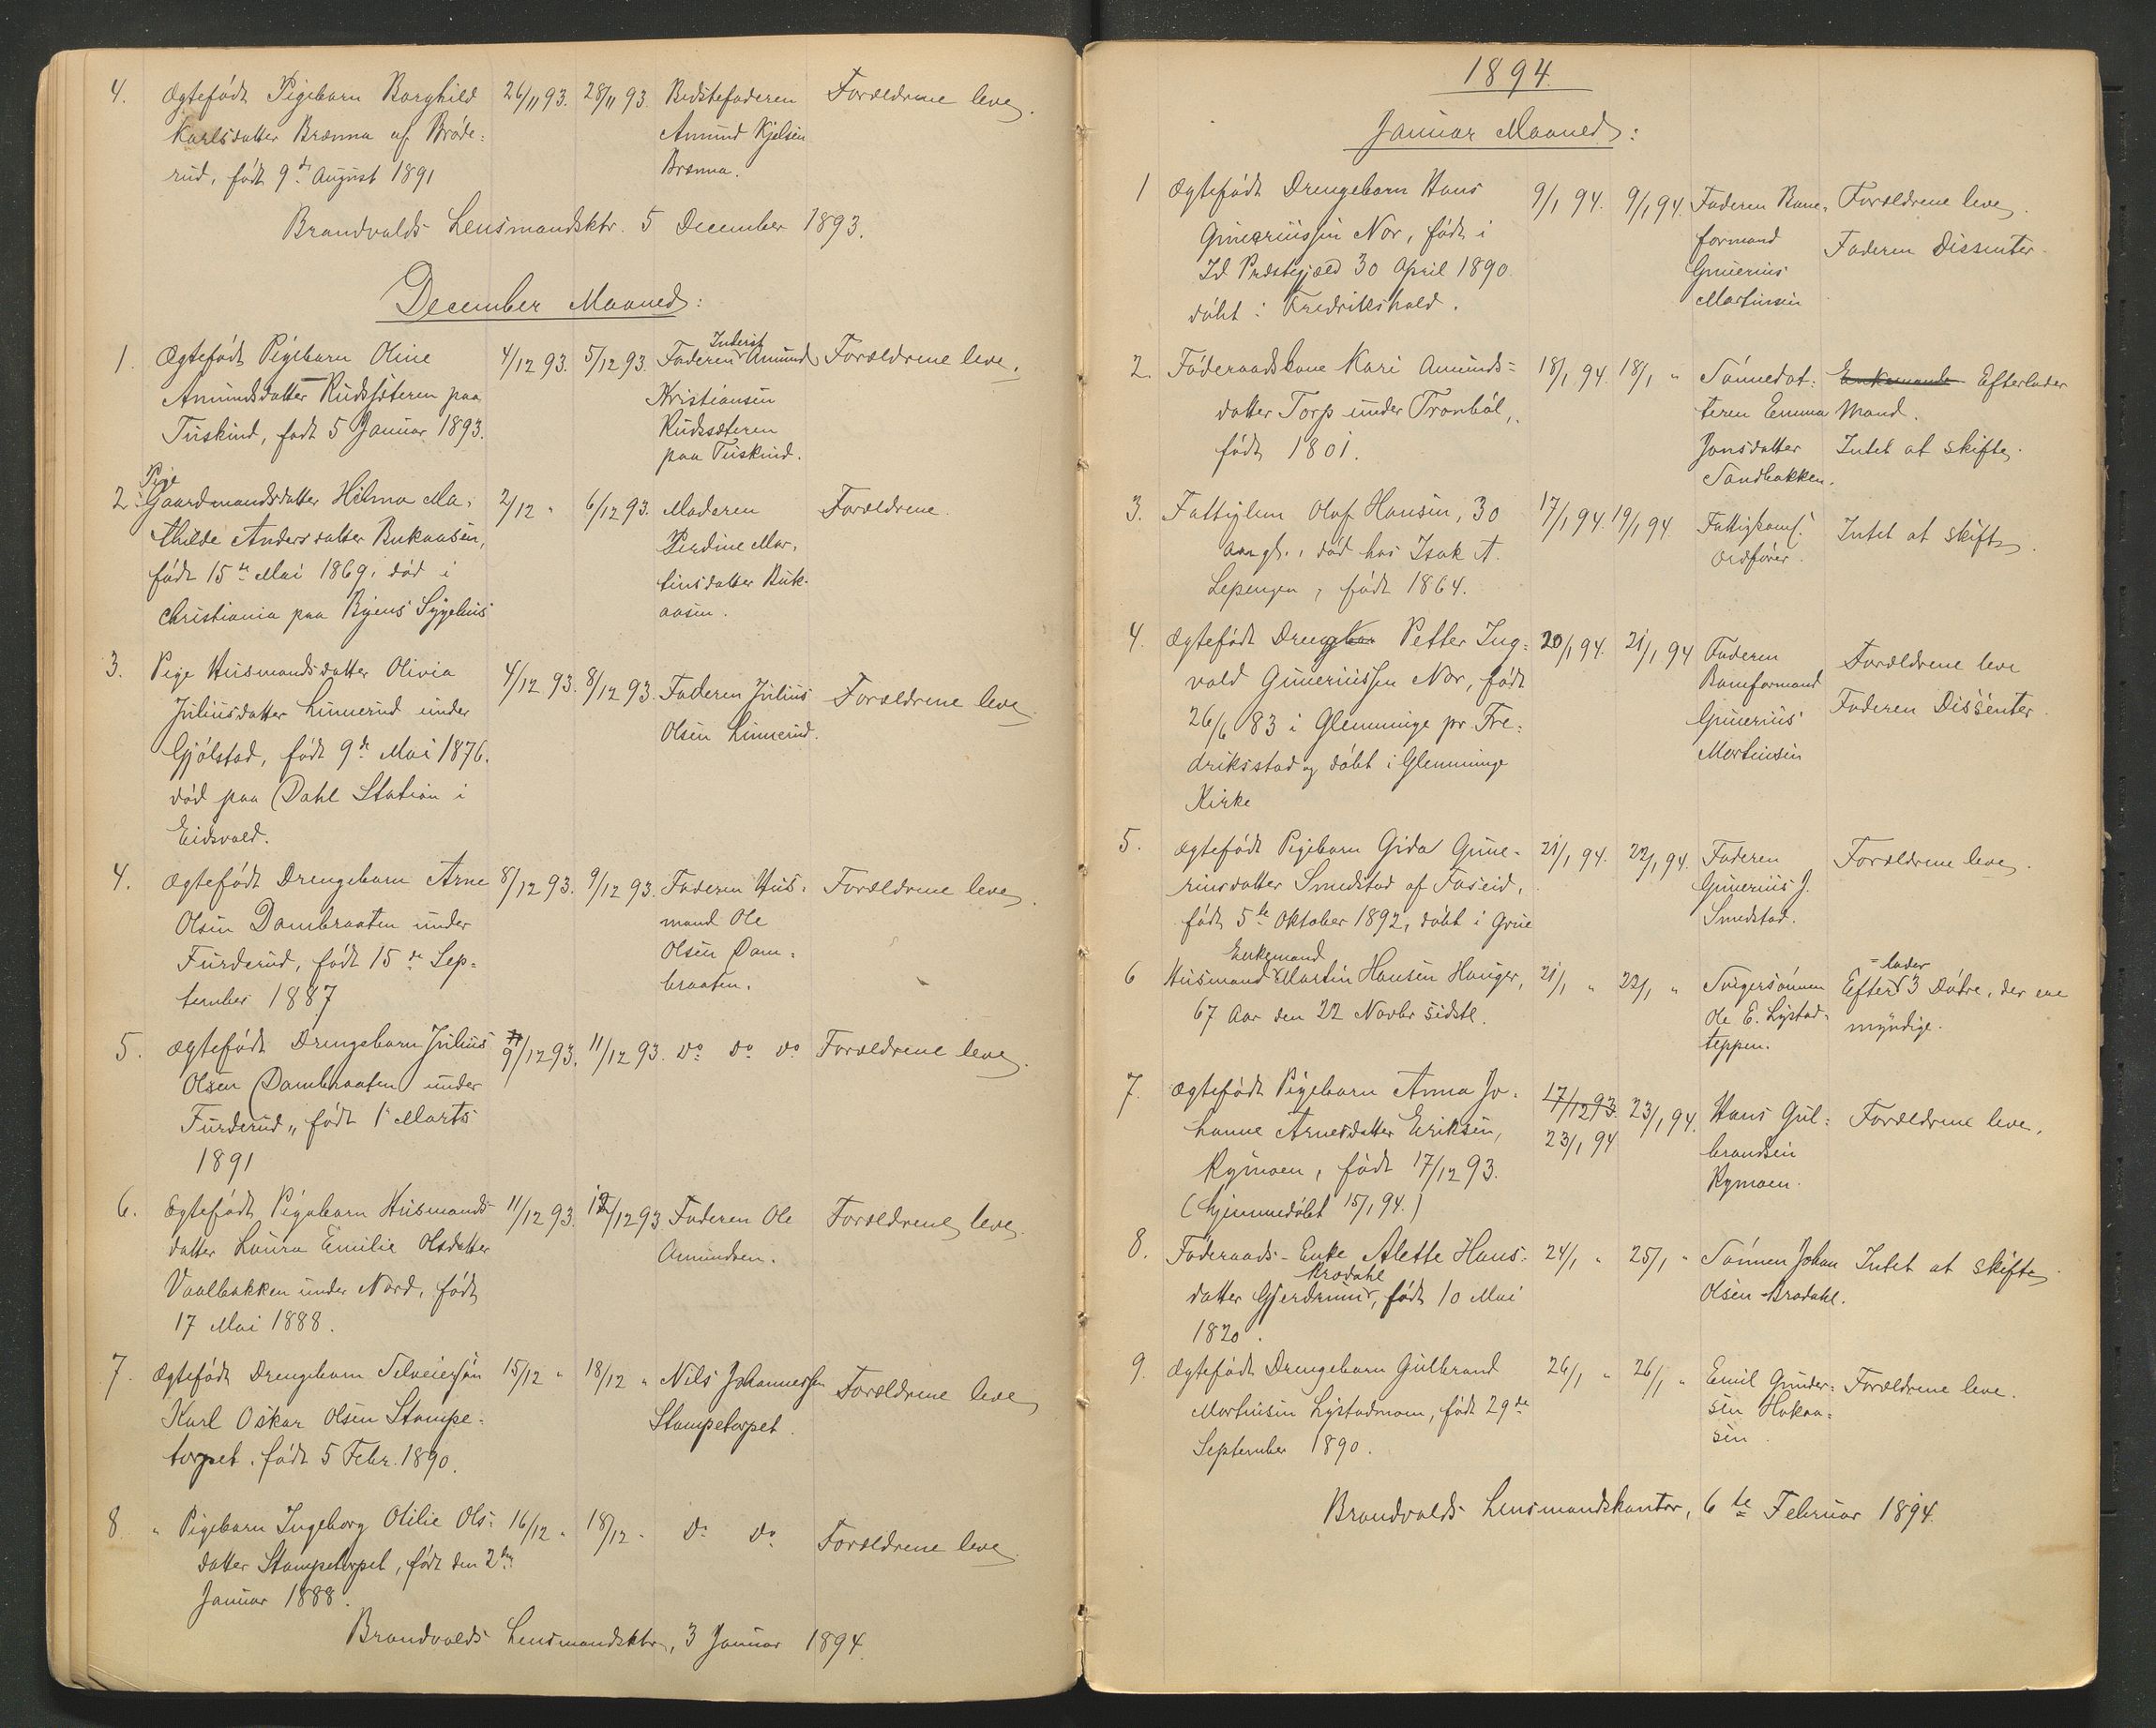 4. Ægtefødt Pigebarn Borghild 26/11 93. 28/11 93. Bedstefaderen Forældrene leve.
Karlsdatter Brænna af Brøde= Amund Kjelsen
rud, født 9de August 1891 Brænna.
Brandvalds Lensmandsktr. 5 December 1893.
December Maaned:
1. Ægtefødt Pigebarn Oline 4/12 93. 5/12 93. Faderen Inderst Amund Forældrene leve.
Amundsdatter Rudssæteren paa Kristiansen
Tuskind, født 5 Januar 1893. Rudssæteren
paa Tuskind.
Pige
2. Gaardmandsdatter Hilma Ma= 2/12 " 6/12 93. Moderen Forældrene.
thilde Andersdatter Bukaasen, Perdine Mar=
født 15de Mai 1869, død i tinsdatter Buk-
Christiania paa Byens Sygehus aasen.
3. Pige Husmandsdatter Olivia 4/12 93. 8/12 93. Faderen Julius Forældrene leve
Juliusdatter Linnerud under Olsen Linnerud.
Gjølstad, født 9de Mai 1876.
død paa Dahl Station i
Eidsvold.
4. Ægtefødt Drengebarn Arne 8/12 93. 9/12 93. Faderen Hus= Forældrene leve.
Olsen Dambraaten under mand Ole
Furderud, født 15de Sep= Olsen Dam=
tember 1887 braaten.
5. Ægtefødt Drengebarn Julius 9/12 93. 11/12 93. do do do Forældrene leve.
Olsen Dambraaten under
Furderud, født 1 Marts
1891
6. Ægtefødt Pigebarn Husmands- 11/12 93. 12/12 93 Faderen Ole Forældrene leve.
datter Laura Emilie Olsdatter Amundsen.
Vaalbakken under Nord, født
17 Mai 1888.
7. Ægtefødt Drengebarn Selveiersøn 15/12 " 18/12 " Nils Johannessen Forældrene leve
Karl Oskar Olsen Stampe= Stampetorpet.
torpet. født 5 Febr. 1890.
8 " Pigebarn Ingeborg Otilie Ols= 16/12 " 18/12 " do do Forældrene leve.
datter Stampetorpet, født den 2den
Januar 1888.
Brandvalds Lensmandsktr, 3 Januar 1894.
1894.
Januar Maaned:
1 Ægtefødt Drengebarn Hans 9/1 94. 9/1 94. Faderen Bane= Forældrene leve.
Gunerиussen Nor, født i formand Faderen Dissenter.
Id Præstegjæld 30 April 1890 Gunerius
døbt i Fredrikshald. Martinsen
2. Føderaadskone Kari Amunds= 18/1 94. 18/1 " Sønnedat= Enkemand Efterlader
datter Torp under Tronbøl, teren Emma Mand.
født 1801. Jonsdatter Intet at skifte.
Sandbakken.
3. Fattiglem Olaf Hansen, 30 17/1 94. 19/1 94 Fattigkoms. Intet at skifte.
Aar gl., død hos Isak A. Ordfører.
Lepengen, født 1864.
4. Ægtefødt Drengbar Petter Ing= 20/1 94. 21/1 94 Faderen Forældrene leve
vald Guneriussen Nor, født Baneformand Faderen Dissenter.
26/6 83 i Glemminge pr. Fre= Gunerius
driksstad og døbt i Glemminge Martinsen
Kirke
5. Ægtefødt Pigebarn Gida Gune- 21/1 94. 22/1 94. Faderen Forældrene leve.
riusdatter Smedstad af Faseid, Gunerius J.
født 5te Oktober 1892, døbt i Grue Smedstad.
Enkemand =lader
6 Husmand Martin Hansen Hanger, 21/1 " 22/1 " Svigersønnen Efter 3 Døtre, der ere
67 Aar den 22 Novbr sidstl. Ole E. Lystad= myndige.
teppen.
7. Ægtefødt Pigebarn Anna Jo= 17/12 93. 23/1 94. Hans Gul= Forældrene leve.
hanne Arnesdatter Eriksen, 23/1 94 brandsen
Rymoen, født 17/12 93. Rymoen.
(hjemmedøbt 15/1 94.)
8. Føderaads-Enke Alette Hans= 24/1 " 25/1 " Sønnen Johan Intet at skifte
Brodahl
datter Gjerdrum, født 10 Mai Olsen Brodahl.
1820.
9. Ægtefødt Drengebarn Gulbrand 26/1 " 26/1 " Emil Gunder= Forældrene leve.
Martinsen Lystadmoen, født 29de sen Hokaa=
September 1890. sen.
Brandvalds Lensmandskontor, 6te Februar 1894.